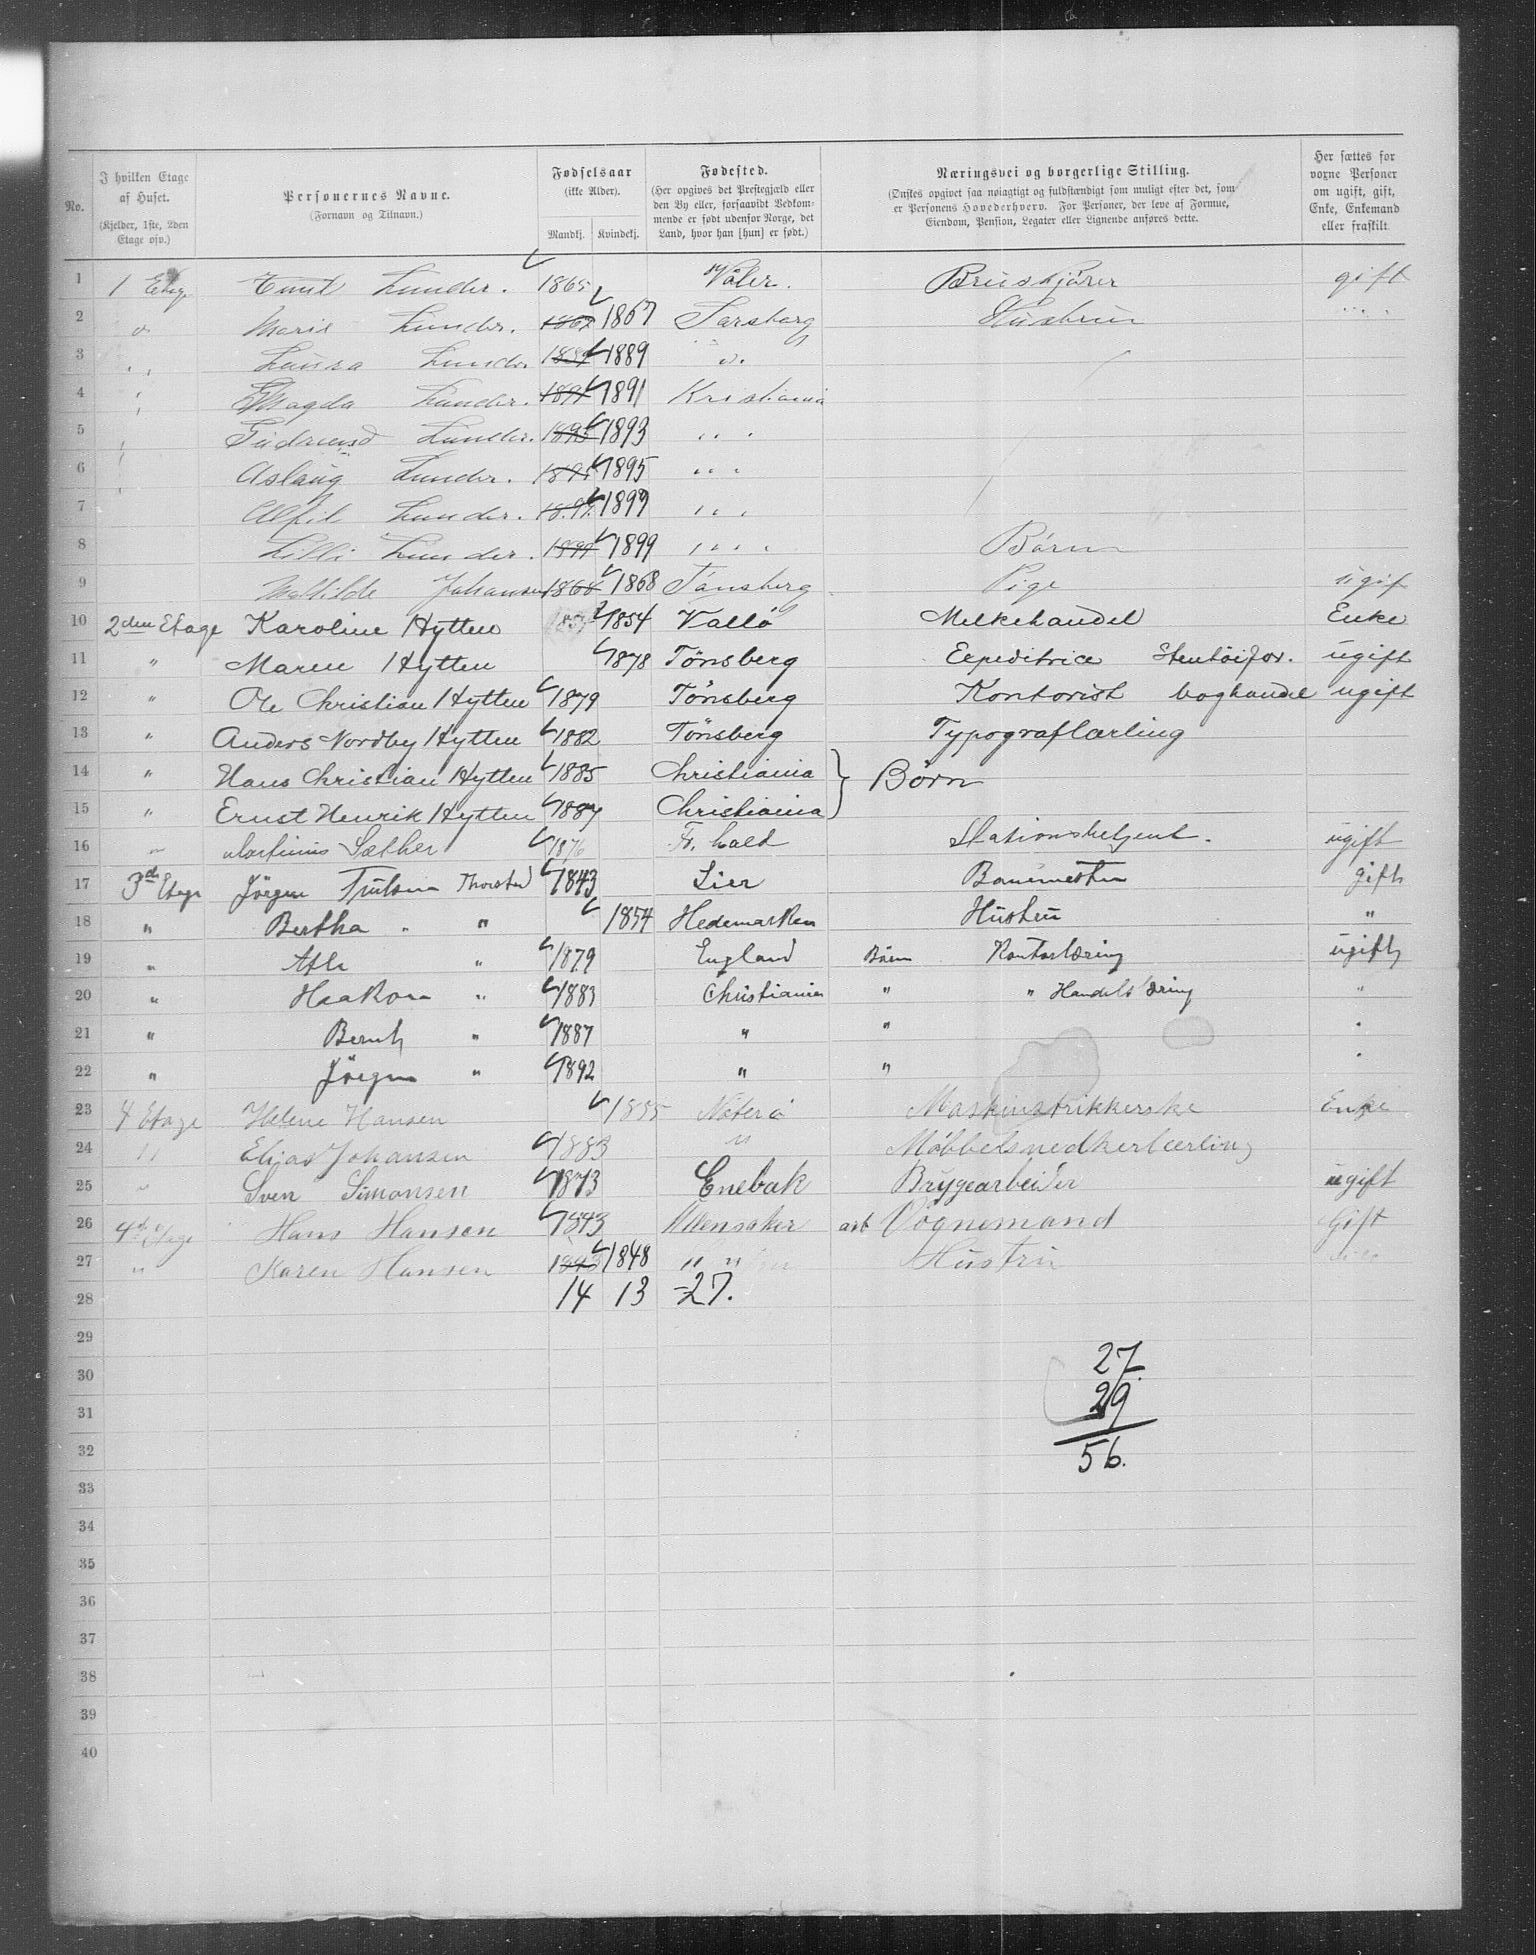 No.
I hvilken Etage af Huset. (Kjelder, 1ste, 2den Etage osv.)
Personernes Navne. (Fornavn og Tilnavn.)
Fødselsaar (ikke Alder). Mandkj. Kvindekj.
Fødested. (Her opgives det Prestegjæld eller den By eller, forsaavidt Vedkommende er født udenfor Norge, det Land, hvor han [hun] er født.)
Næringsvei og borgerlige Stilling. (Ønskes opgivet saa nøiagtigt og fuldstændigt som muligt efter det, som er Personens Hovederhverv. For Personer, der leve af Formue, Eiendom, Pension, Legater eller Lignende anføres dette.
Her sættes for voxne Personer om ugift, gift, Enke, Enkemand eller fraskilt.
1 1 Etag Emil Lunder. 1865 Våler. Bruskjører gift
2 Marie Lunder. 1867 1867 Sarsborg Husbrue
3 Laura Lunder. 1889 1889
4 Magda Lunder. 1891 1891 Kristiania
5 Lunder. 1893 1893 " "
6 Aslaug Lunder. 1895 1895 " "
7 Lunder. 1897 1897 " "
8 Lilli Lunder. 1899 1899 " " Børn
9 Mathilde Johansen 1868 1868 Tønsberg Pige ugif
10 2den Etage Karoline Hytten 1854 1854 Vallö Melkehandel Enke
11 " Maren Hytten 1878 Tönsberg Expeditrice Stentöifor. ugift
12 " Ole Christian Hytten 1879 Tönsberg Kontorist boghandel ugift
13 " Anders Nordby Hytten 1882 Tönsberg Typograflærling
14 " Hans Christian Hytten 1885 Christiania } Börn
15 " Ernst Henrik Hytten 1887 Christiania
16 " Martinius Sæther 1876 Fr. hald Stationsbetjent. ugift
17 3de Etage Jörgen Thorstad 1843 Lier Baumester gift
18 " Bertha " " 1854 Hedemarken Hustru "
19 " Atle " 1879 England Börn Kontorlæring ugift
20 " Haakon " 1883 Christiania " " Handelslæring "
21 " Bernt " 1887 " "
22 " Jörgen " 1892 " "
23 4 Etage Helene Hansen 1855 Nøterø Maskinstrikkerske Enke
24 " Elias Johansen 1883 " Møbbelsnedkerlærling
25 " Sven Simonsen 1873 Enebak Brygearbeider ugift
26 4de Etage Hans Hansen 1843 Ullensaker arb Vognemand Gift
27 " Karen Hansen 1848 1848 " " Hustru
28 14 13 -27.
29
30 27.
31 29
32 56.
33
34
35
36
37
38
39
40